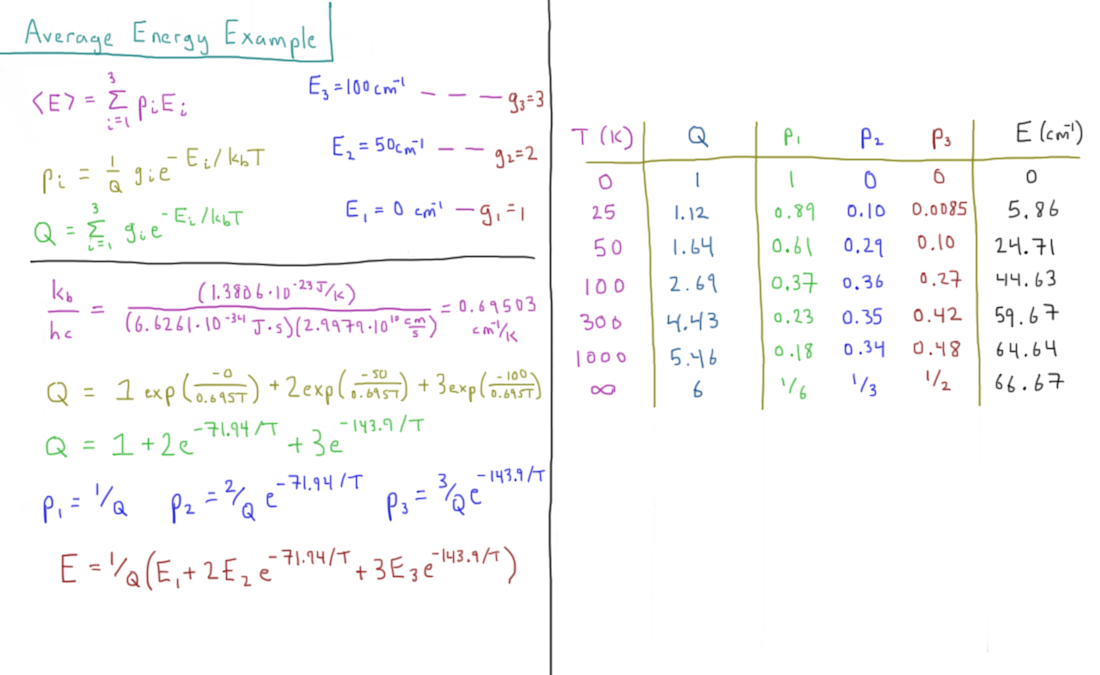 Average Energy Example
⟨E⟩ = Σ_{i=1}^{3} p_i E_i
E₃ = 100 cm⁻¹ – – – g₃=3
p_i = 1/Q g_i e^{-E_i/k_bT}
E₂ = 50 cm⁻¹ – – g₂=2
Q = Σ_{i=1}^{3} g_i e^{-E_i/k_bT}
E₁ = 0 cm⁻¹ – g₁=1
k_b/hc = (1.3806·10⁻²³ J/K) / ((6.6261·10⁻³⁴ J·s)(2.9979·10¹⁰ cm/s)) = 0.69503 cm⁻¹/K
Q = 1 exp(-0/0.695T) + 2exp(-50/0.695T) + 3exp(-100/0.695T)
Q = 1 + 2e^{-71.94/T} + 3e^{-143.9/T}
p₁ = 1/Q p₂ = 2/Q e^{-71.94/T} p₃ = 3/Q e^{-143.9/T}
E = 1/Q (E₁ + 2E₂ e^{-71.94/T} + 3E₃ e^{-143.9/T})
T (K) Q P₁ P₂ P₃ E (cm⁻¹)
0 1 1 0 0 0
25 1.12 0.89 0.10 0.0085 5.86
50 1.64 0.61 0.29 0.10 24.71
100 2.69 0.37 0.36 0.27 44.63
300 4.43 0.23 0.35 0.42 59.67
1000 5.46 0.18 0.34 0.48 64.64
∞ 6 1/6 1/3 1/2 66.67